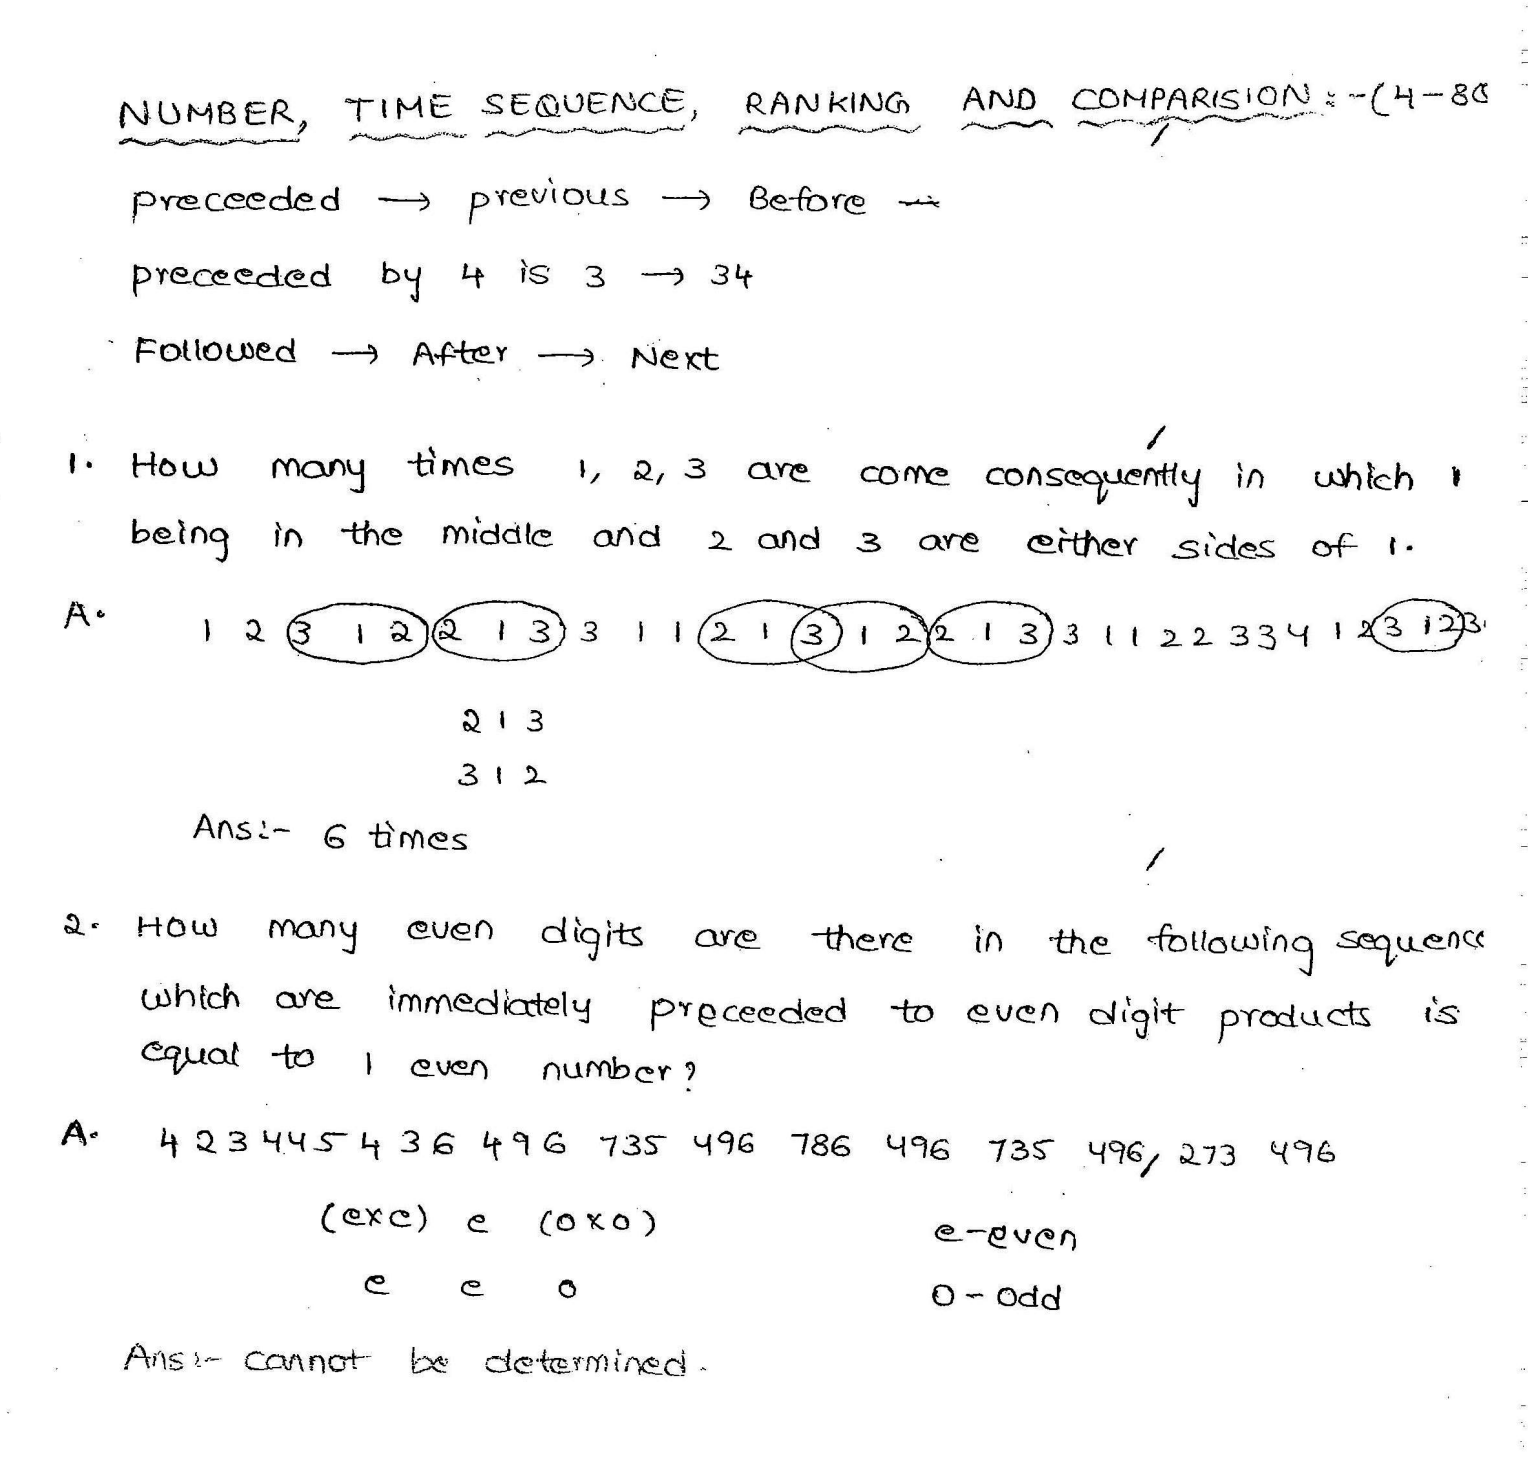 NUMBER, TIME SEQUENCE, RANKING AND COMPARISION :-(4-80
preceeded → previous → Before
preceeded by 4 is 3 → 34
Followed → After → Next
1. How many times 1, 2, 3 are come consequently in which 1
being in the middle and 2 and 3 are either sides of 1.
A. 1 2 3 1 2 2 1 3 3 1 1 2 1 3 1 2 2 1 3 3 1 1 2 2 3 3 4 1 2 3 1 2 3
2 1 3
3 1 2
Ans:- 6 times
2. How many even digits are there in the following sequence
which are immediately preceeded to even digit products is
equal to 1 even number?
A. 4 2 3 4 4 5 4 3 6 4 9 6 735 496 786 496 735 496, 273 496
(exe) e (oxo)
e-even
e e o
o-odd
Ans:- cannot be determined.